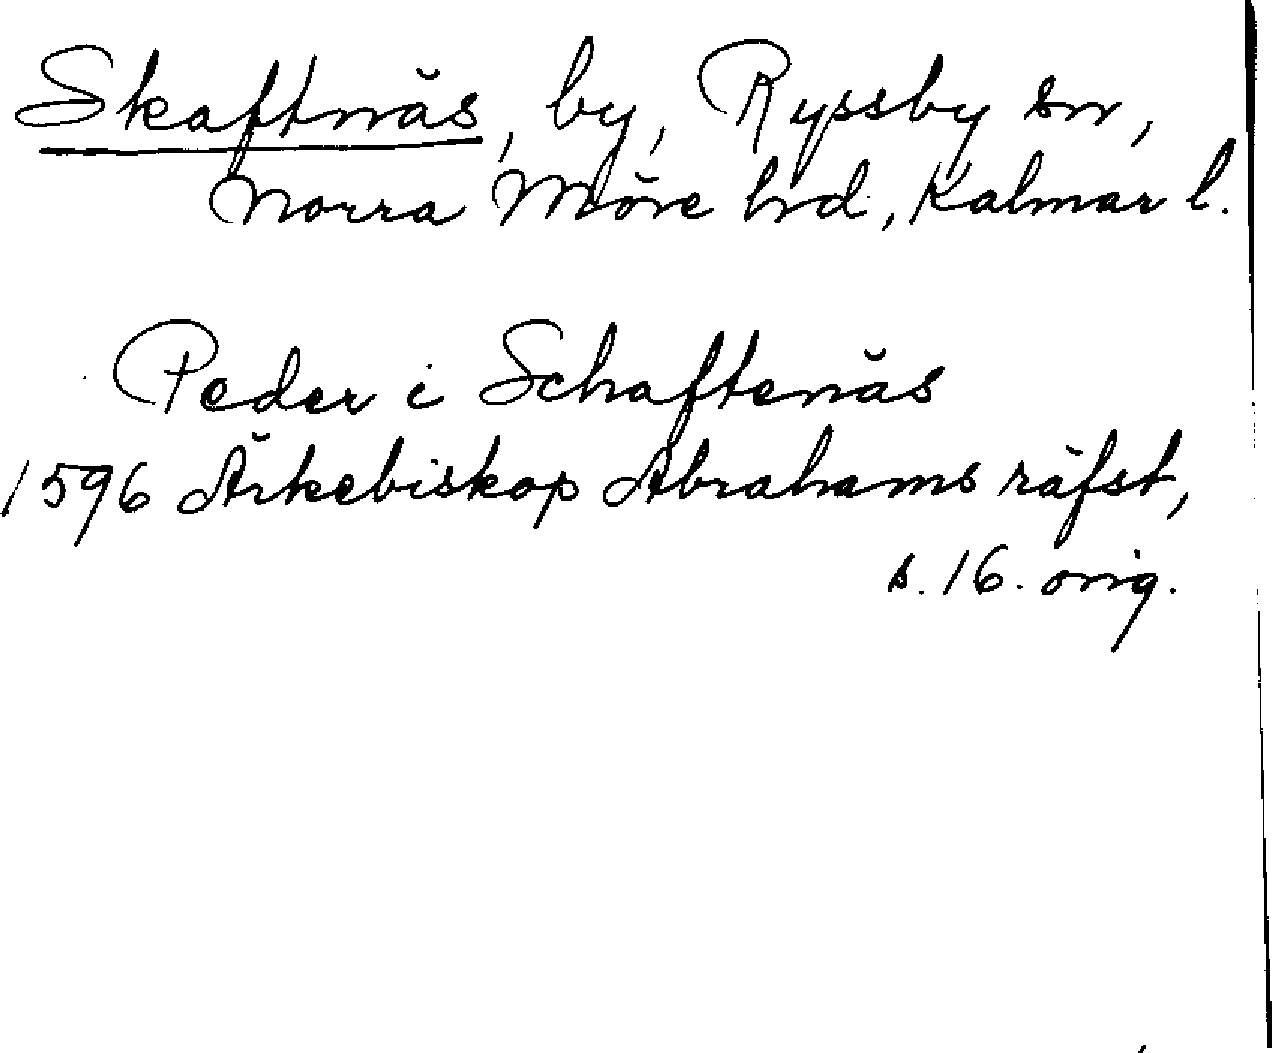 Skaftnäs, by, Ryssby sn,
Norra Möre hrd, Kalmar l.
Peder i Schaftenäs
1596 Ärkebiskop Abrahams räfst,
s. 16. orig.